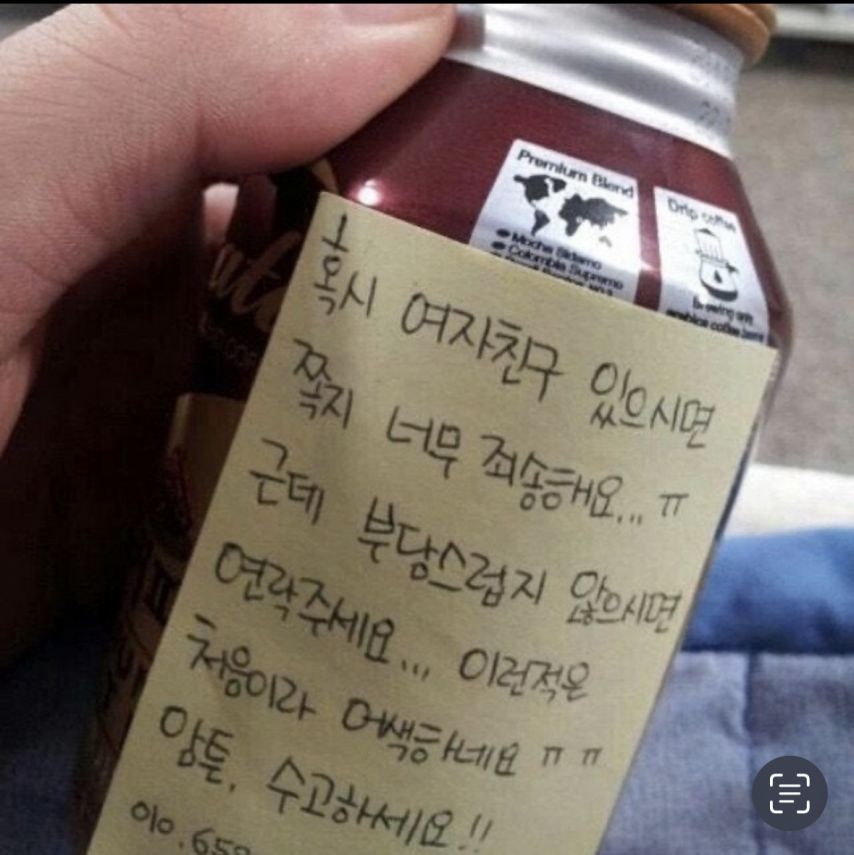 Premium Blend
Mocha Sidamo
Colombia Supremo
Drip coffee
혹시 여자친구 있으시면
쪽지 너무 죄송해요... ㅠ
근데 부당스럽지 않으시면
연락주세요... 이런적은
처음이라 어색하네요 ㅠㅠ
암튼, 수고하세요!!
010.658